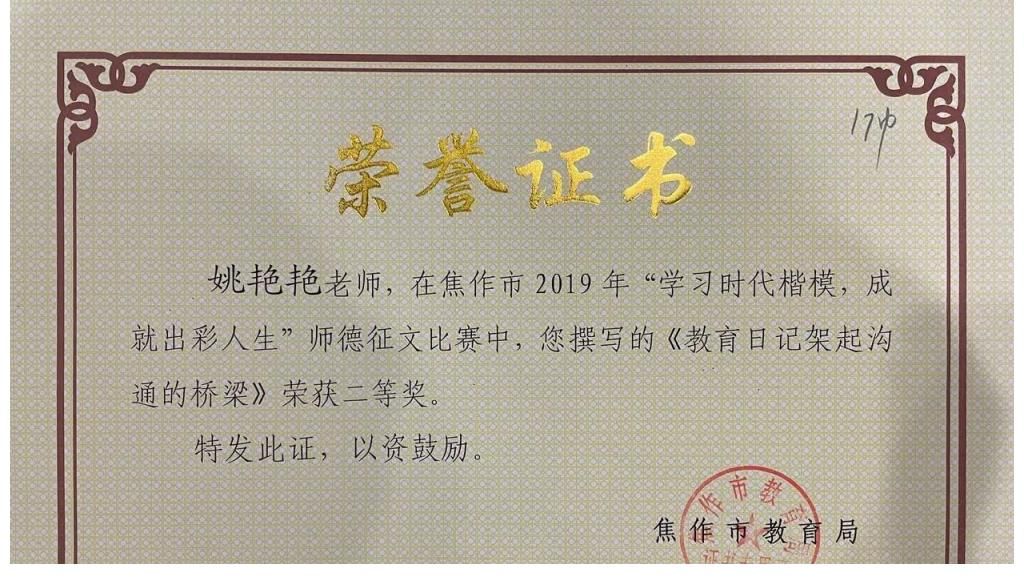 荣誉证书
17中
姚艳艳老师，在焦作市2019年“学习时代楷模，成
就出彩人生”师德征文比赛中，您撰写的《教育日记架起沟
通的桥梁》荣获二等奖。
特发此证，以资鼓励。
焦作市教育局
焦作市教育局